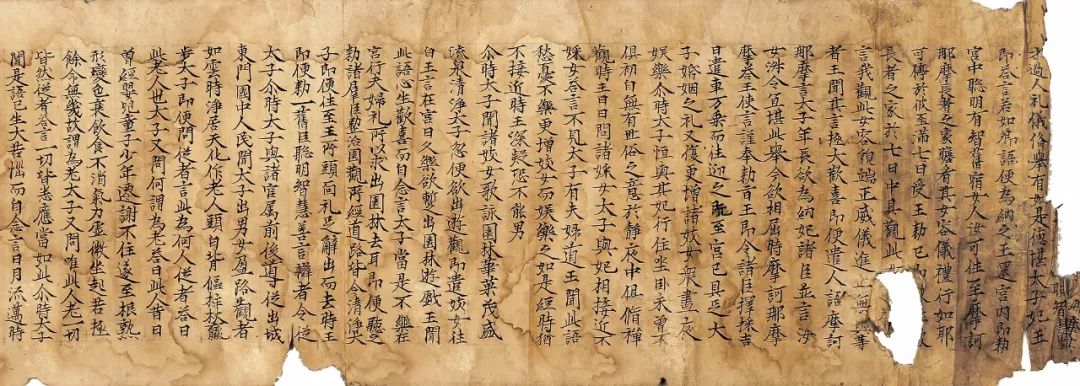 才過人礼儀俻舉有如是德堪太子妃王
即荅言若如卿語便為納之王還宮内即勑
宮中聰明有智舊宿女人汝可往至摩訶
那摩長者之家瞻看其女容儀禮行如耶
可停於彼至滿七日受王勑已
長者之家六七日中具觀此
言我觀此女容貌端正威儀進止無與等
者王聞其言極大歡喜即便遣人語摩訶
那摩言太子年長欲為納妃諸臣並言汝
女淑令宜堪此舉今欲相出時摩訶那摩
摩荅王使言謹奉勑旨王即令諸臣擇採吉
日遣車万乘而往迎之既至宮已具足大
子婚姻之礼又復更增諸妓女衆晝夜
娯樂尒時太子恒與其妃行住坐卧未甞不
俱初自無有世俗之意於静夜中但脩禪
觀時王日日問諸婇女太子與妃相接近不
婇女荅言不見太子有夫婦道王聞此語
愁憂不樂更增妓女而娯樂之如是經時猶
不接近時王深疑恐不能男
尒時太子聞諸妓女歌詠園林華菓茂盛
流泉清淨太子忽便欲出遊觀即遣妓女往
白王言在宮日久樂欲蹔出園林遊戲王聞
此語心生歡喜而自念言太子當是不樂在
宮行夫婦礼所以求出園林去耳即便聽之
勑諸群臣整治園觀所經道路皆令清淨太
子即便往至王所頭面礼足辭出而去時王
即便勑一舊臣聰明智慧善言辯者令從
太子尒時太子與諸官属前後導從出城
東門國中人民聞太子出男女盈路觀者
如雲時淨居天化作老人頭白背傴柱杖羸
步太子即便問從者言此為何人從者荅曰
此老人也太子又問何謂為老荅曰此人昔日
曾經嬰兒童子少年遷謝不住遂至根熟
形變色衰飲食不消氣力虚微坐起苦極
餘命無幾故謂為老太子又問唯此人老一切
皆然從者荅言一切皆悉應當如此尒時太子
聞是語已生大苦惱而自念言日月流邁時